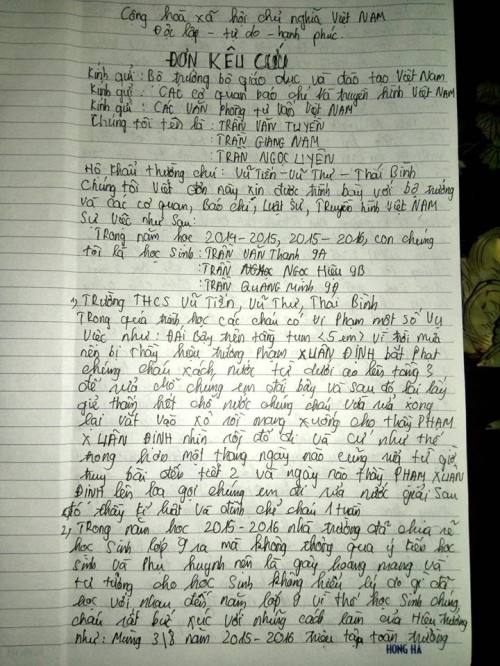 Cộng hoà xã hội chủ nghĩa Việt NAM
Độc lập - tự do - hạnh phúc.
ĐƠN KÊU CỨU
Kính gửi: Bộ trưởng bộ giáo dục và đào tạo Việt Nam
Kính gửi: CÁC cơ quan báo chí và truyền hình Việt NAM
Kính gửi: CÁC VĂN Phòng tư vấn Việt NAM
Chúng tôi tên là: TRẦN VĂN TUYẾN
: TRẦN GIANG NAM
: TRẦN NGỌC LUYỆN
Hộ khẩu thường chú: Vũ Tiến - Vũ Thư - Thái Bình
Chúng tôi Viết đơn này xin được trình bày với bộ trưởng
và các cơ quan, Báo chí, Luật sư, Truyền hình Việt NAM
Sự Việc như Sau:
Trong năm học 2014-2015, 2015-2016, con chúng
tôi là học Sinh: TRẦN VĂN Thanh 9A
: TRẦN Ngọc Hiếu 9B
: TRẦN QUANG Minh 9A
1, TRường THCS Vũ Tiến, Vũ Thư, Thái Bình
Trong quá trình học các cháu có vi Phạm một số Vụ
Việc như: ĐÁI Bậy trên tầng tum <5 em> vì trời mưa
nên bị Thầy hiệu trưởng Phạm XUÂN ĐÍNH bắt Phạt
chúng cháu xách nước từ dưới ao lên tầng 3
để rửa chỗ chúng em đái bậy và sau đó lại lấy
giẻ thấm hết chỗ nước chúng cháu vừa rửa xong
lại vắt vào xô rồi mang xuống cho thầy PHẠM
XUÂN ĐÍNH nhìn rồi đổ đi và cứ như thế
trong hơn một tháng ngày nào cũng vậy từ giờ
truy bài đến tiết 2 và ngày nào thầy PHẠM XUÂN
ĐÍNH lên loa gọi chúng em đi rửa nước giải Sau
đó thầy kỉ luật và đình chỉ cháu 1 tuần
2, TRong năm học 2015-2016 nhà trường đã chia rẽ
học Sinh lớp 9 ra mà không thông qua ý kiến học
sinh và Phụ huynh nên là gây hoang mang và
tư tưởng cho học Sinh không hiểu lý do gì đã
học với nhau đến năm lớp 9 vì thế học Sinh chúng
cháu rất bức xúc với những cách làm của Hiệu trưởng
như: Mùng 3/8 năm 2015-2016 triệu tập toàn trường
HỒNG HÀ